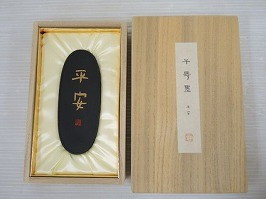 平安
千寿墨
平安